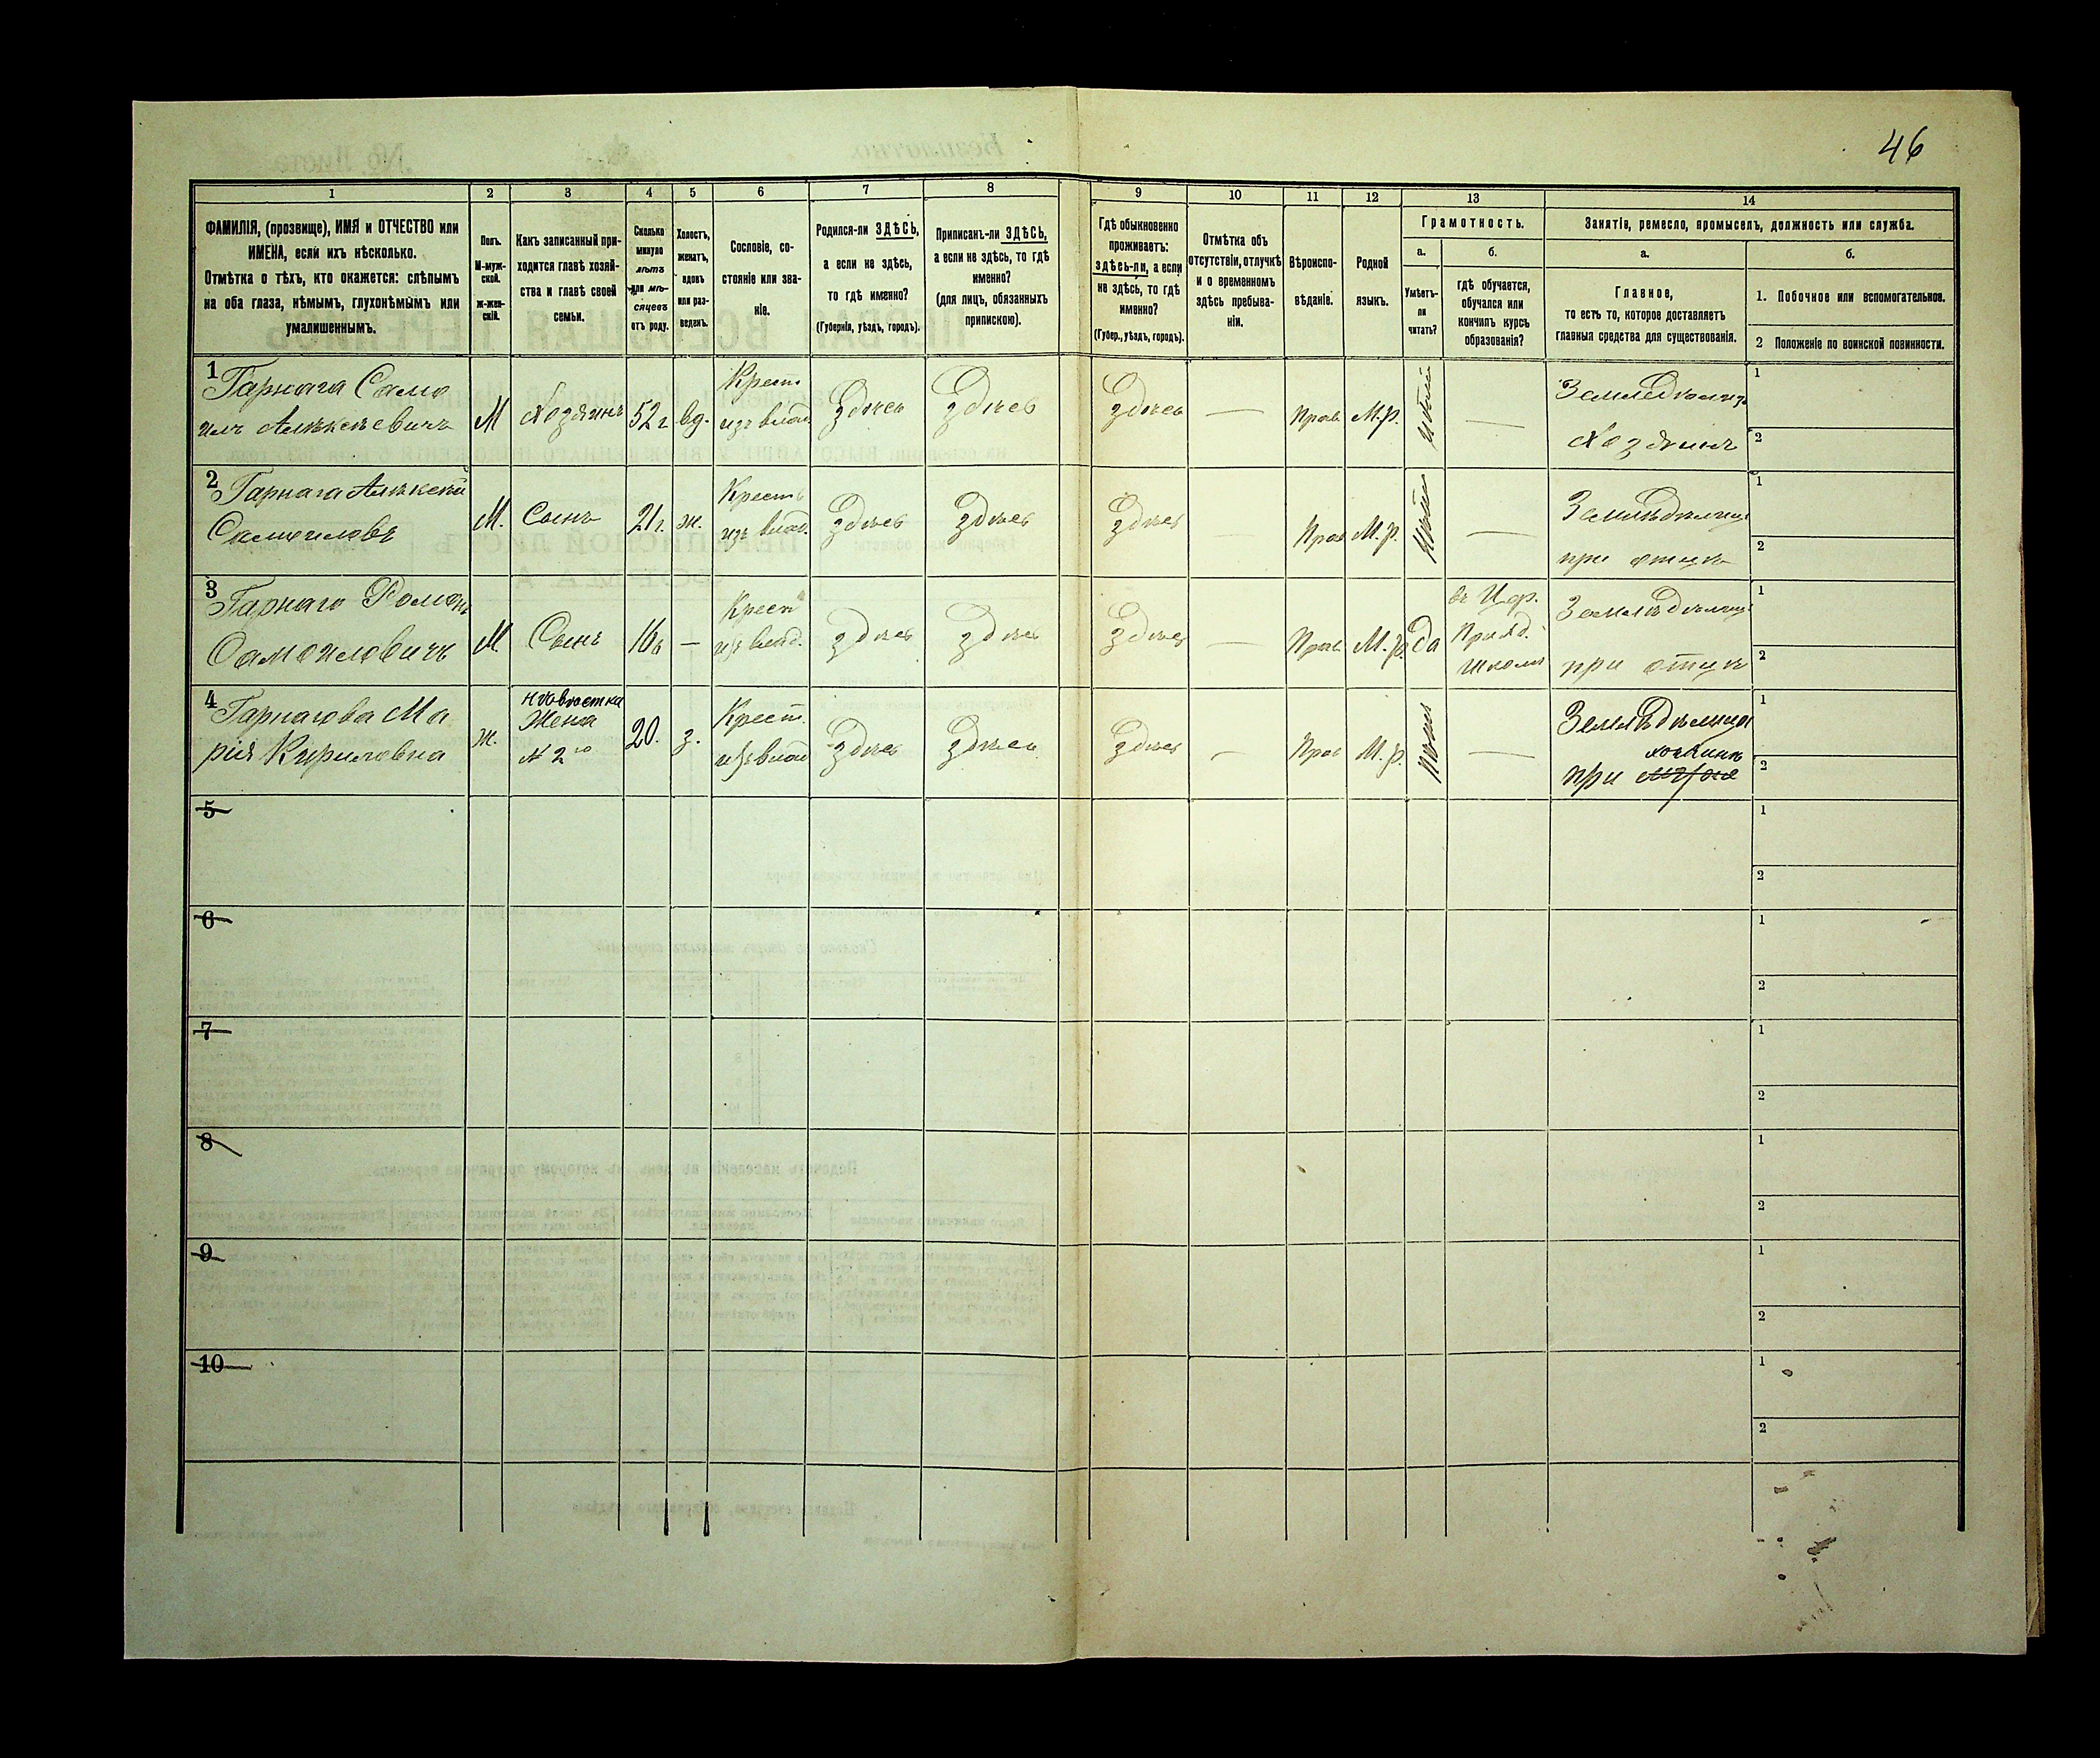 46
1 2 3 4 5 6 7 8 9 10 11 12 13 14
ФАМИЛІЯ, (прозвище), ИМЯ и ОТЧЕСТВО или
ИМЕНА, если ихъ нѣсколько.
Отмѣтка о тѣхъ, кто окажется: слѣпымъ
на оба глаза, нѣмымъ, глухонѣмымъ или
умалишеннымъ.
Полъ.
М-муж-
ской.
ж-жен-
скій.
Какъ записанный при-
ходится главѣ хозяй-
ства и главѣ своей
семьи.
Сколько
минуло
лѣтъ
или мѣ-
сяцевъ
отъ роду.
Холостъ,
женатъ,
вдовъ
или раз-
веденъ.
Сословіе, со-
стояніе или зва-
ніе.
Родился-ли ЗДѢСЬ,
а если не здѣсь,
то гдѣ именно?
(Губернія, уѣздъ, городъ).
Приписанъ-ли ЗДѢСЬ,
а если не здѣсь, то гдѣ
именно?
(для лицъ, обязанныхъ
припискою).
Гдѣ обыкновенно
проживаетъ:
здѣсь-ли, а если
не здѣсь, то гдѣ
именно?
(Губер., уѣздъ, городъ).
Отмѣтка объ
отсутствіи, отлучкѣ
и о временномъ
здѣсь пребыва-
ніи.
Вѣроиспо-
вѣданіе.
Родной
языкъ.
Грамотность.
а.
Умѣетъ-
ли
читать?
б.
гдѣ обучается,
обучался или
кончилъ курсъ
образованія?
Занятіе, ремесло, промыселъ, должность или служба.
а.
Главное,
то есть то, которое доставляетъ
главныя средства для существованія.
б.
1. Побочное или вспомогательное.
2 Положеніе по воинской повинности.
1
Гарнага Само
илъ Алѣксѣевичъ
М
Хозяинъ
52 г.
вд.
Крест
изъ влад.
здѣсь
здѣсь
здѣсь
—
Прав.
М.р.
—
Земледѣлецъ
Хозяинъ
1
2
2
Гарнага Алѣксѣй
Самоиловъ
М.
Сынъ
21 г.
ж.
Крестъ
изъ влад.
здѣсь
здѣсь
здѣсь
—
Прав
М.р.
—
Земледѣлецъ
при отцѣ
1
2
3
Гарнаго Романъ
Самоиловичъ
М.
Сынъ
16
—
Крест
изъ влад.
здѣсь
здѣсь
здѣсь
—
Прав.
М.р.
да
въ Цер.
Приход.
школѣ
Земледѣлецъ
при отцѣ
1
2
4
Гарнагова Ма
рія Кириловна
ж.
невѣстка
Жена
№ 2го
20.
з.
Крест.
изъ влад
здѣсь
здѣсь
здѣсь
—
Прав
М.р.
—
Земледѣлица
хозяинѣ
при мужѣ
1
2
5
1
2
6
1
2
7
1
2
8
1
2
9
1
2
10
1
2